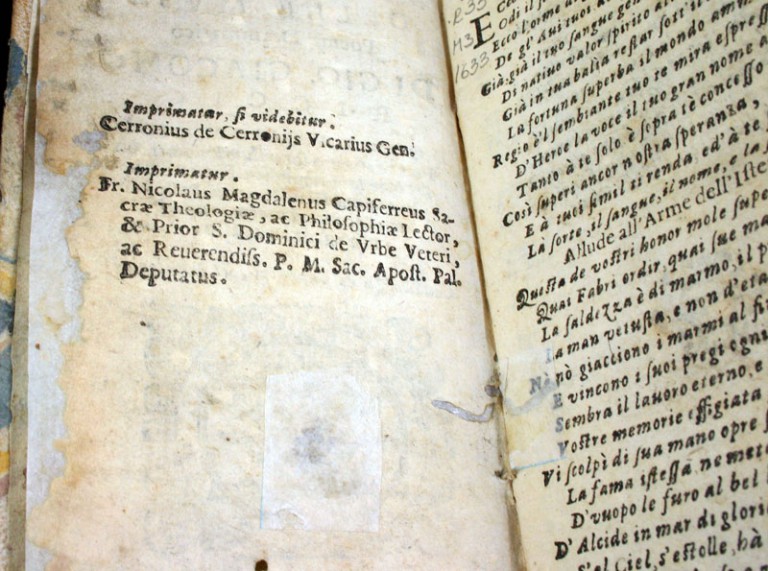 Imprimatur, ſi videbitur.
Cerronius de Cerronijs Vicarius Gen.
Imprimatur.
Fr. Nicolaus Magdalenus Capiferreus Sa-
cræ Theologiæ, ac Philoſophiæ Lector,
& Prior S. Dominici de Vrbe Veteri,
ac Reuerendiſs. P. M. Sac. Apoſt. Pal.
Deputatus.
1633
Ecco l'orme
De gl' Aui tuoi
Già già il tuo ſangue
Di natiuo valor ſpirito
Già in tua balìa reſtar ſott'il
La fortuna ſuperba il mondo
Regio è'l ſembiante tuo te mira eſpreſſ
D'Heroe la voce il tuo gran nome a
Tanto à te ſolo è ſoprà tè conceſſo
Così ſuperi ancor noſtra ſperanza,
E à tuoi ſimil ti renda, ed' à te
La ſorte, il ſangue, il nome, e la
Allude all'Arme dell'Iſte
Queſta de voſtri honor mole ſupe
Quai Fabri ordir, quai ſue ma
La ſaldezza è di marmo, il p
La man vetuſta, e non d'eta
Nò giacciono i marmi al fi
E vincono i ſuoi pregi ogni
Sembra il lauoro eterno, e
Voſtre memorie effigiata
Vi ſcolpì di ſua mano opre
La fama iſteſſa, ne met
D'vuopo le furo al bel
D' Alcide in mar di glori
S'al Ciel, s'eſtolle, hà